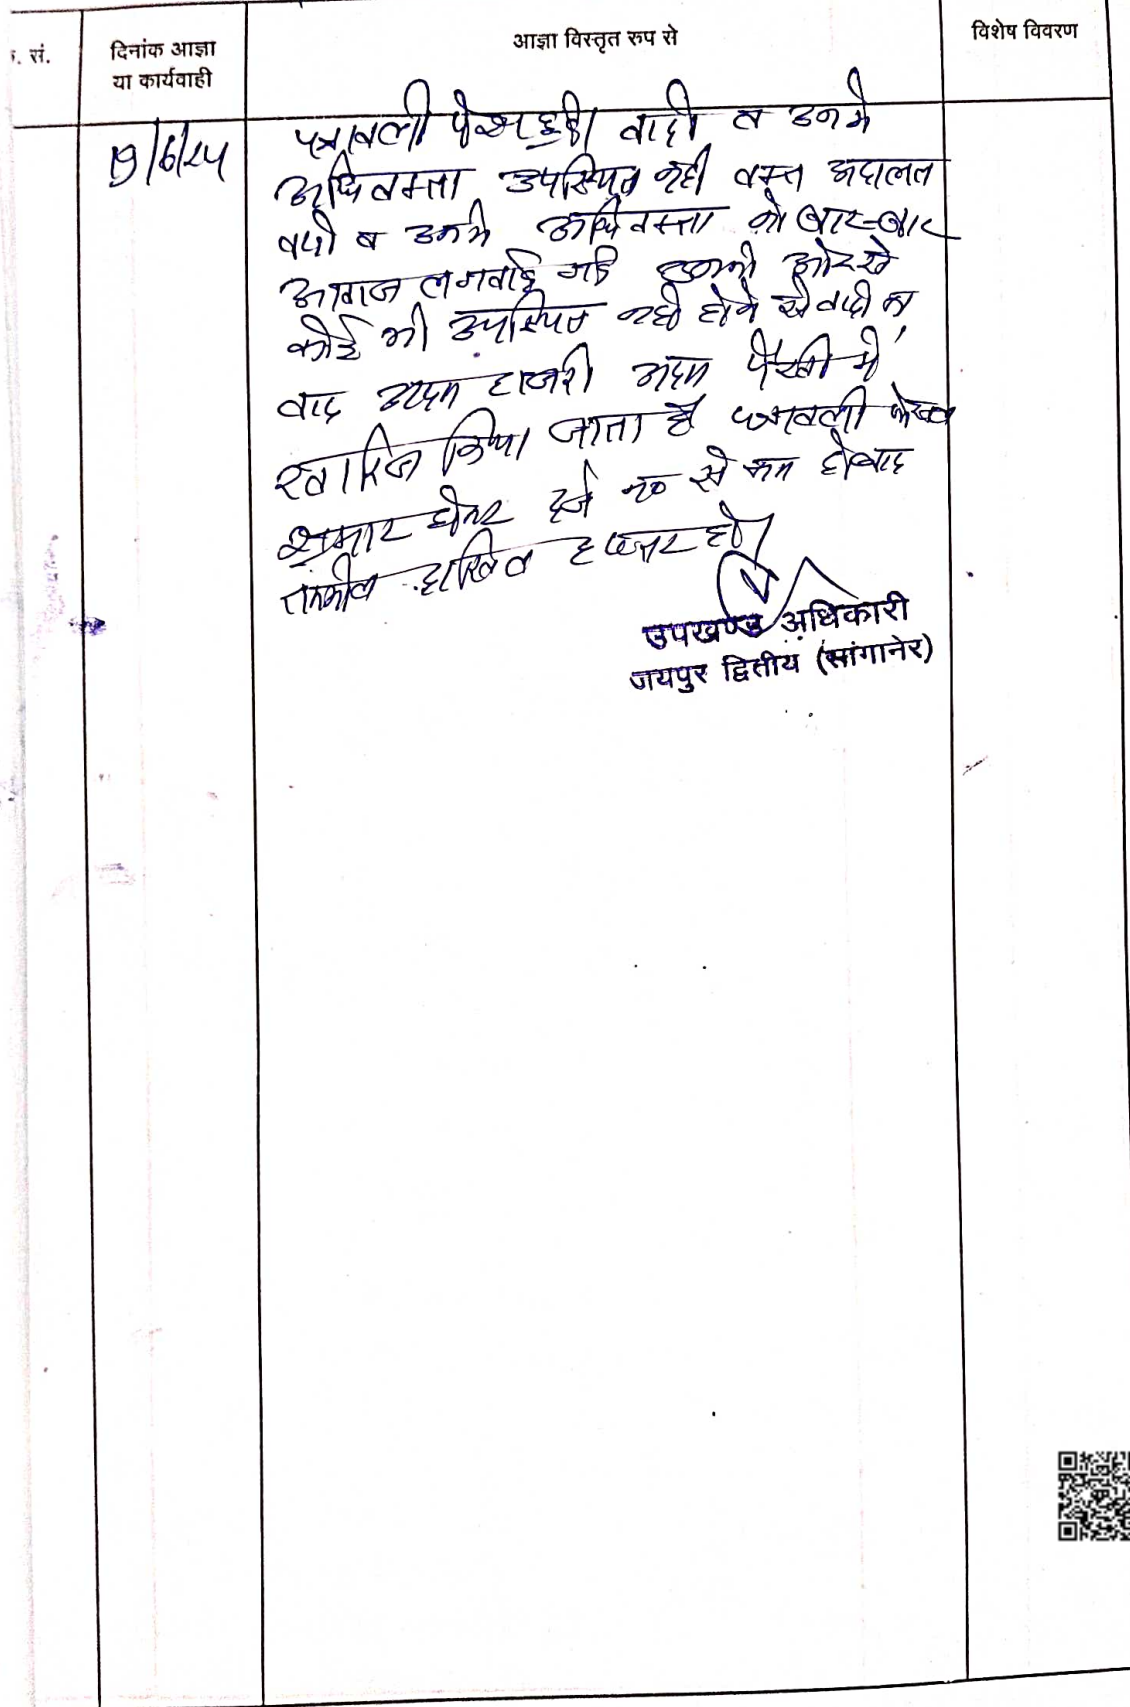 . सं.
दिनांक आज्ञा
या कार्यवाही
आज्ञा विस्तृत रुप से
विशेष विवरण
19/6/24
पत्रावली पेश हुई। वादी व उनके
अधिवक्ता उपस्थित नही वक्त अदालत
वादी व उनके अधिवक्ता को बार-बार
आवाज लगवाई गई उनकी ओर से
कोई भी उपस्थित नही होने से वादी का
वाद अदम हाजरी अदम पैरवी में
खारिज किया जाता है पत्रावली फैसल
शुमार होकर दर्ज न० से कम हो बाद
तकमील दाखिल दफ्तर हो।
उपखण्ड अधिकारी
जयपुर द्वितीय (सांगानेर)